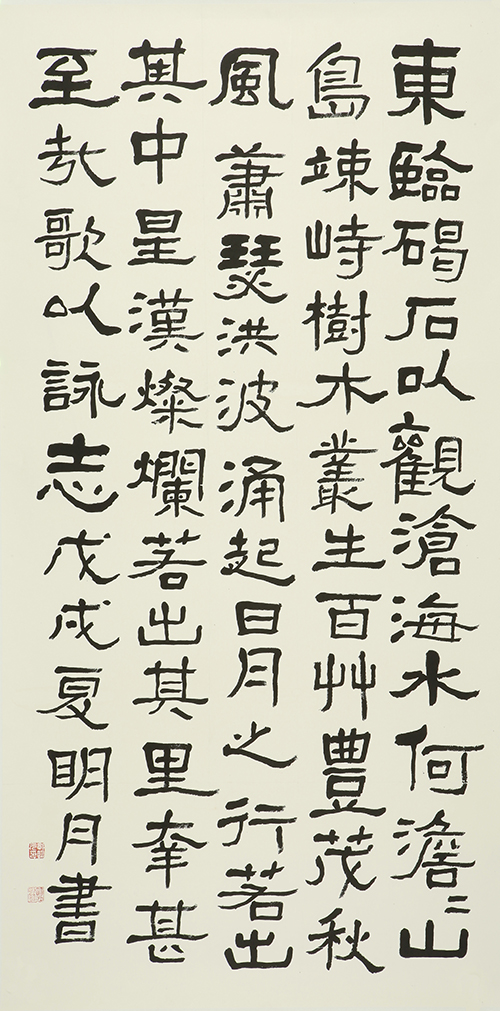 東臨碣石以觀滄海水何澹〻山
島竦峙樹木叢生百艸豊茂秋
風蕭瑟洪波涌起日月之行若出
其中星漢燦爛若出其里幸甚
至哉歌以詠志戊戌夏明月書